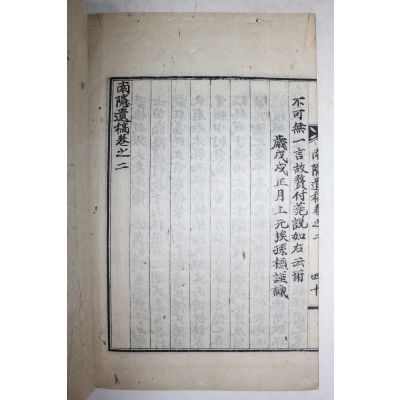 不可無一言故贅付蕘說如右云爾
歲戊戌正月上元後孫謹識
南隱遺稿卷之二
南隱遺稿卷之二 四十